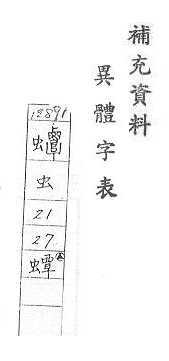 補充資料
異體字表
12891
虫
21
27
蟫